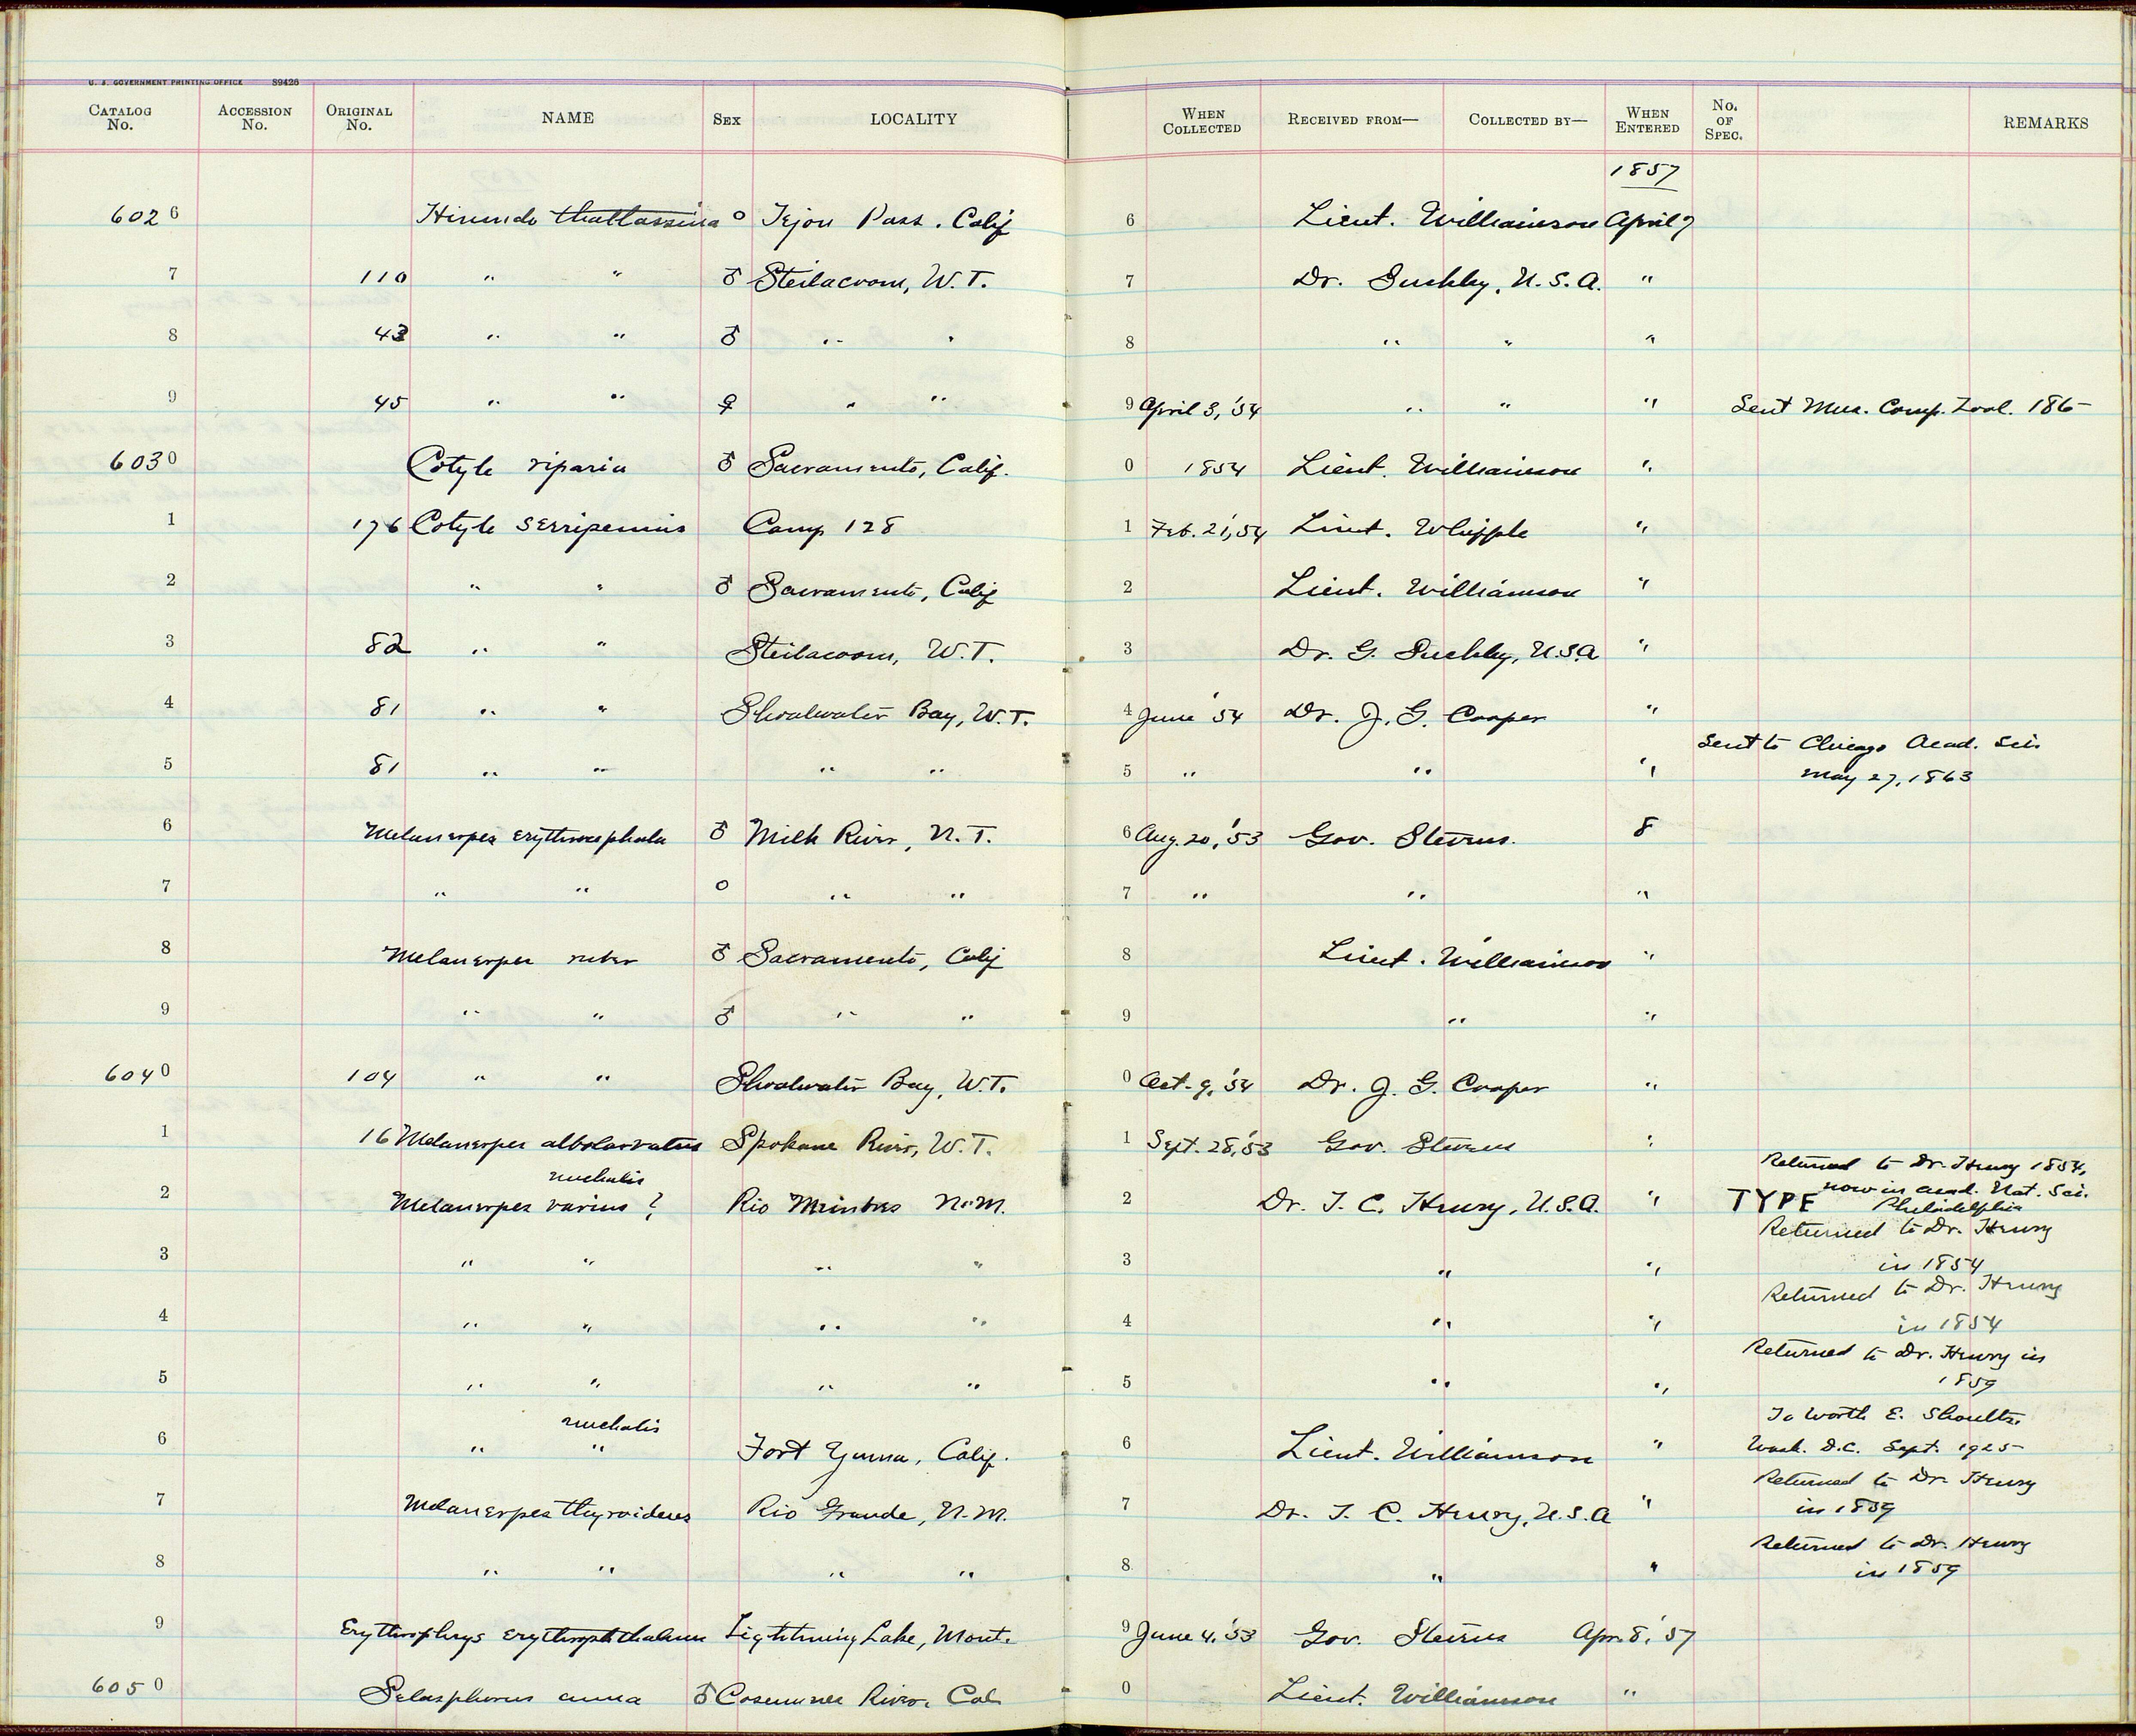 U. S. GOVERNMENT PRINTING OFFICE 89426
CATALOG No. ACCESSION No. ORIGINAL No. NAME SEX LOCALITY WHEN COLLECTED RECEIVED FROM— COLLECTED BY— WHEN ENTERED No. OF SPEC. REMARKS
1857
6026 Hirundo thallassina O Tejon Pass. Calif 6 Lieut. Williamson April 7
7 110 " " ♂ Steilacoom, W.T. 7 Dr. Suckley, U.S.A. "
8 43 " " ♂ " " 8 " " "
9 45 " " ♀ " " 9 April 3, '54 " " " Sent Mus. Comp. Zool. 186-
6030 Cotyle riparia ♂ Sacramento, Calif. 0 1854 Lieut. Williamson "
1 176 Cotyle serripennis Camp 128 1 Feb. 21, '54 Lieut. Whipple "
2 " " ♂ Sacramento, Calif 2 Lieut. Williamson "
3 82 " " Steilacoom, W.T. 3 Dr. G. Suckley, U.S.A "
4 81 " " Shoalwater Bay, W.T. 4 June '54 Dr. J. G. Cooper "
Sent to Chicago Acad. Sci.
5 81 " " " " 5 " " " May 27, 1863
6 Melanerpes erythrocephala ♂ Milk River, N.T. 6 Aug. 20, '53 Gov. Stevens. 8
7 " " O " " 7 " " "
8 Melanerpes ruber ♂ Sacramento, Calif 8 Lieut. Williamson "
9 " " ♂ " " 9 " "
6040 104 " " Shoalwater Bay, W.T. 0 Oct. 9, '54 Dr. J. G. Cooper "
1 16 Melanerpes albolarvatus Spokane River, W.T. 1 Sept. 28, '53 Gov. Stevens "
nuchalis Returned to Dr. Henry 1854,
now in Acad. Nat. Sci.
2 Melanerpes varius ? Rio Mimbres N.M. 2 Dr. T. C. Henry, U.S.A. " TYPE Philadelphia
Returned to Dr. Henry
3 " " " " 3 " " in 1854
Returned to Dr. Henry
4 " " " " 4 " " in 1854
Returned to Dr. Henry in
5 " " " " 5 " " 1859
nuchalis To Worth E. Shoults,
6 " " Fort Yuma, Calif. 6 Lieut. Williamson " Wash. D.C. Sept. 1925
Returned to Dr Henry
7 Melanerpes thyroideus Rio Grande, N.M. 7 Dr. T. C. Henry, U.S.A " in 1859
Returned to Dr. Henry
8 " " " " 8 " " in 1859
9 Erythrophrys erythrophthalmus Lightning Lake, Mont. 9 June 4, '53 Gov. Stevens Apr. 8, '57
6050 Selasphorus anna ♂ Cosumnes River, Cal 0 Lieut. Williamson "